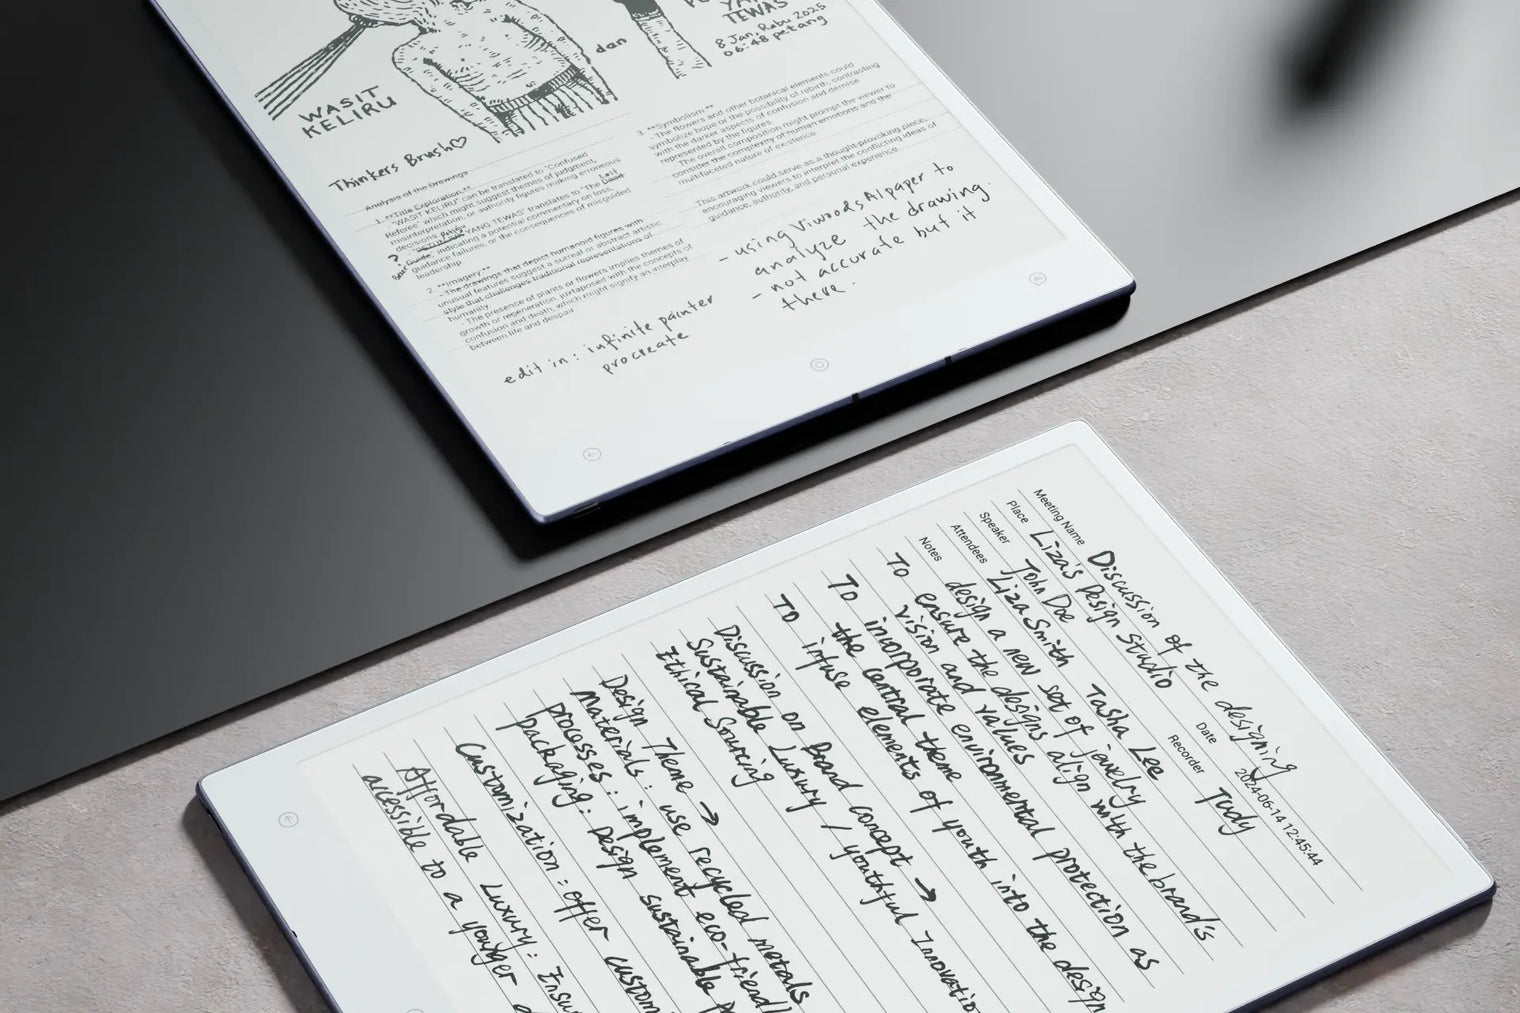 YANG
TEWAS
8 Jan, Rabu 2025
06:48 petang
dan
WASIT
KELIRU
Thinkers Brush♡
Analysis of the Drawings
1. **Title Exploration:**
- "WASIT KELIRU" can be translated to "Confused
Referee" which might suggest themes of judgment,
misinterpretation, or authority figures making erroneous
decisions.
YANG TEWAS" translates to "The Last
Guide, indicating a potential commentary on loss,
guidance failures, or the consequences of misguided
leadership.
2. **Imagery:**
- The drawings that depict humanoid figures with
unusual features suggest a surreal or abstract artistic
style that challenges traditional representations of
humanity.
- The presence of plants or flowers implies themes of
growth or regeneration, juxtaposed with the concepts of
confusion and death, which might signify an interplay
between life and despair.
3. **Symbolism:**
- The flowers and other botanical elements could
symbolize hope or the possibility of rebirth, contrasting
with the darker aspects of confusion and demise
represented by the figures.
- The overall composition might prompt the viewer to
consider the complexity of human emotions and the
multifaceted nature of existence.
This artwork could serve as a thought-provoking piece,
encouraging viewers to interpret the conflicting ideas of
guidance, authority, and personal experience.
- using Viwoods AIpaper to
analyze the drawing.
- not accurate but it
there.
edit in: infinite painter
procreate
AI
Meeting Name Discussion of the designing
Place Liza's Design Studio Date 2024-06-14 12:45:44
Speaker John Doe Recorder Judy
Attendees Liza Smith Tasha Lee
Notes design a new set of jewelry
To ensure the designs align with the brand's
vision and values
To incorporate environmental protection as
the central theme
To infuse elements of youth into the design
Discussion on Brand concept →
Sustainable Luxury / youthful Innovation
Ethical Sourcing
Design Theme →
Materials: use recycled metals
processes: implement eco-friendl
packaging: Design sustainable p
Customization: offer custom
Affordable Luxury: Ensu
accessible to a younger